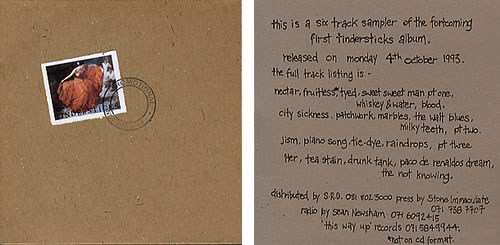 TINDERSTICKS
PROMOTIONAL
this is a six track sampler of the fortcoming
first tindersticks album.
released on monday 4th october 1993.
the full track listing is -
nectar, fruitless*, tyed, sweet sweet man pt one,
whiskey & water, blood.
city sickness, patchwork, marbles, the walt blues,
milky teeth, pt two.
jism, piano song, tie-dye, raindrops, pt three
her, tea stain, drunk tank, paco de renaldos dream,
the not knowing.
distributed by S.R.D. 081 802 3000 press by Stone Immaculate
071 738 7707
radio by Sean Newsham 071 6092415
'this way up' records 071 5849944.
*not on cd format.